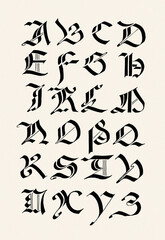 A B C D
E F G H
I K L M
N O P Q
R S T
X Y Z